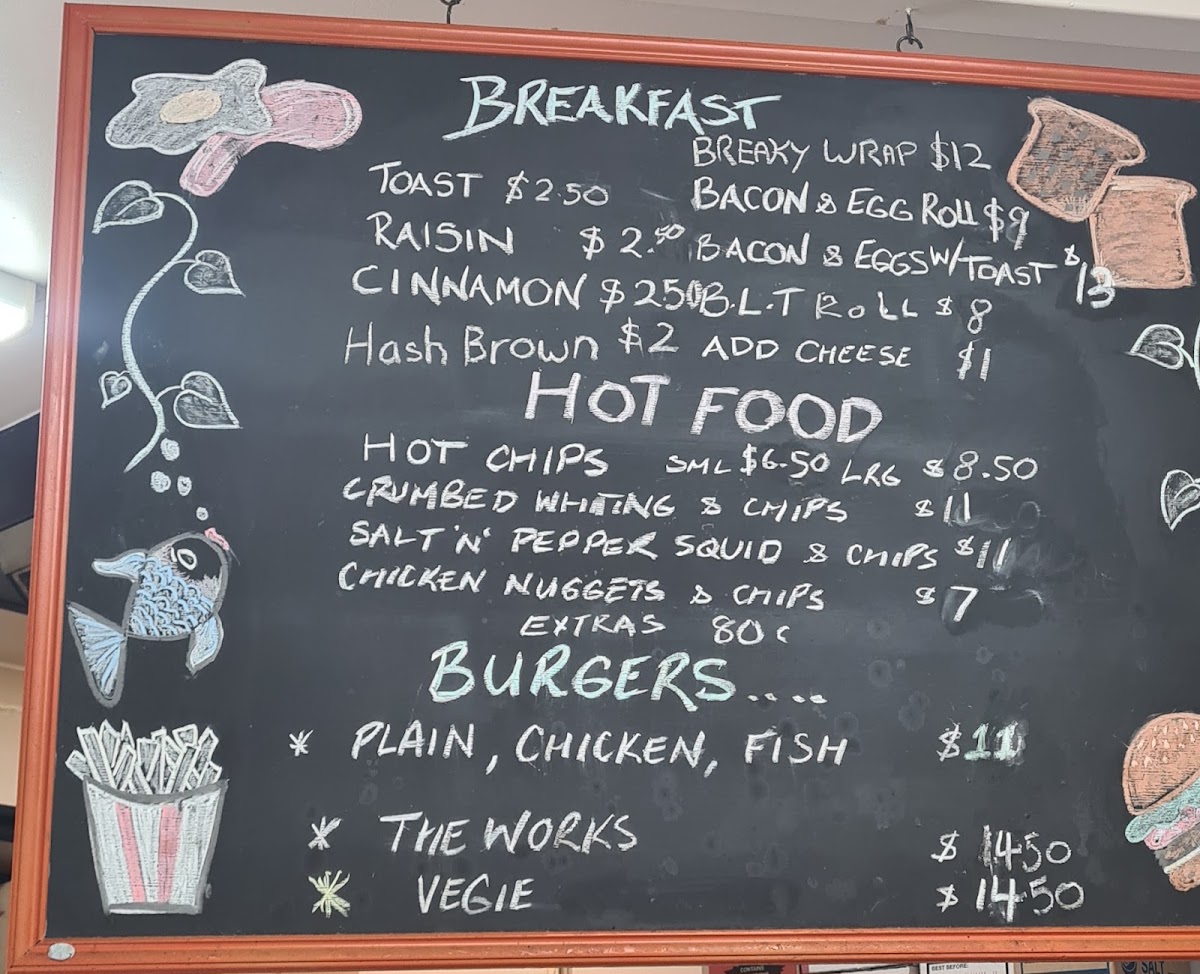 BREAKFAST
BREAKY WRAP $12
TOAST $2.50
BACON & EGG ROLL $9
RAISIN $2.50
BACON & EGGS W/TOAST $13
CINNAMON $250
B.L.T ROLL $8
Hash Brown $2
ADD CHEESE $1
HOT FOOD
HOT CHIPS SML $6.50 LRG $8.50
CRUMBED WHITING & CHIPS $11
SALT 'N' PEPPER SQUID & CHIPS $11
CHICKEN NUGGETS & CHIPS $7
EXTRAS 80c
BURGERS....
* PLAIN, CHICKEN, FISH $11
* THE WORKS $1450
* VEGIE $1450
BEST BEFORE:
SALT